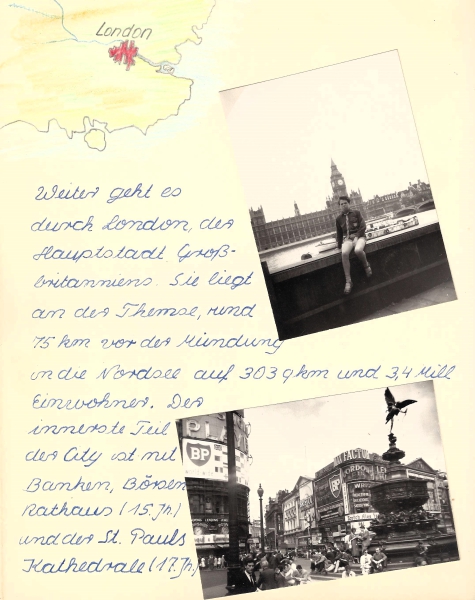 London
Weiter geht es
durch London, der
Hauptstadt Groß-
britanniens. Sie liegt
an der Themse, rund
75 km vor der Mündung
in die Nordsee auf 303 qkm und 3,4 Mill
Einwohner. Der
innerste Teil
der City ist mit
Banken, Börsen
Rathaus (15. Jh.)
und der St. Pauls
Kathedrale (17. Jh.)
BP
BP